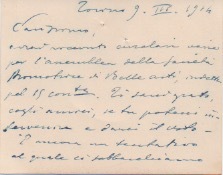 Torino 9. III. 1914
Carissimo,
avrai ricevuto circolari varie
per l'assemblea della famosa
Promotrice di Belle Arti, indetta
pel 15 corr. Ti sarei grato
cogli amici, se tu potessi
e darci il voto
È ancora un tentativo
al quale ci